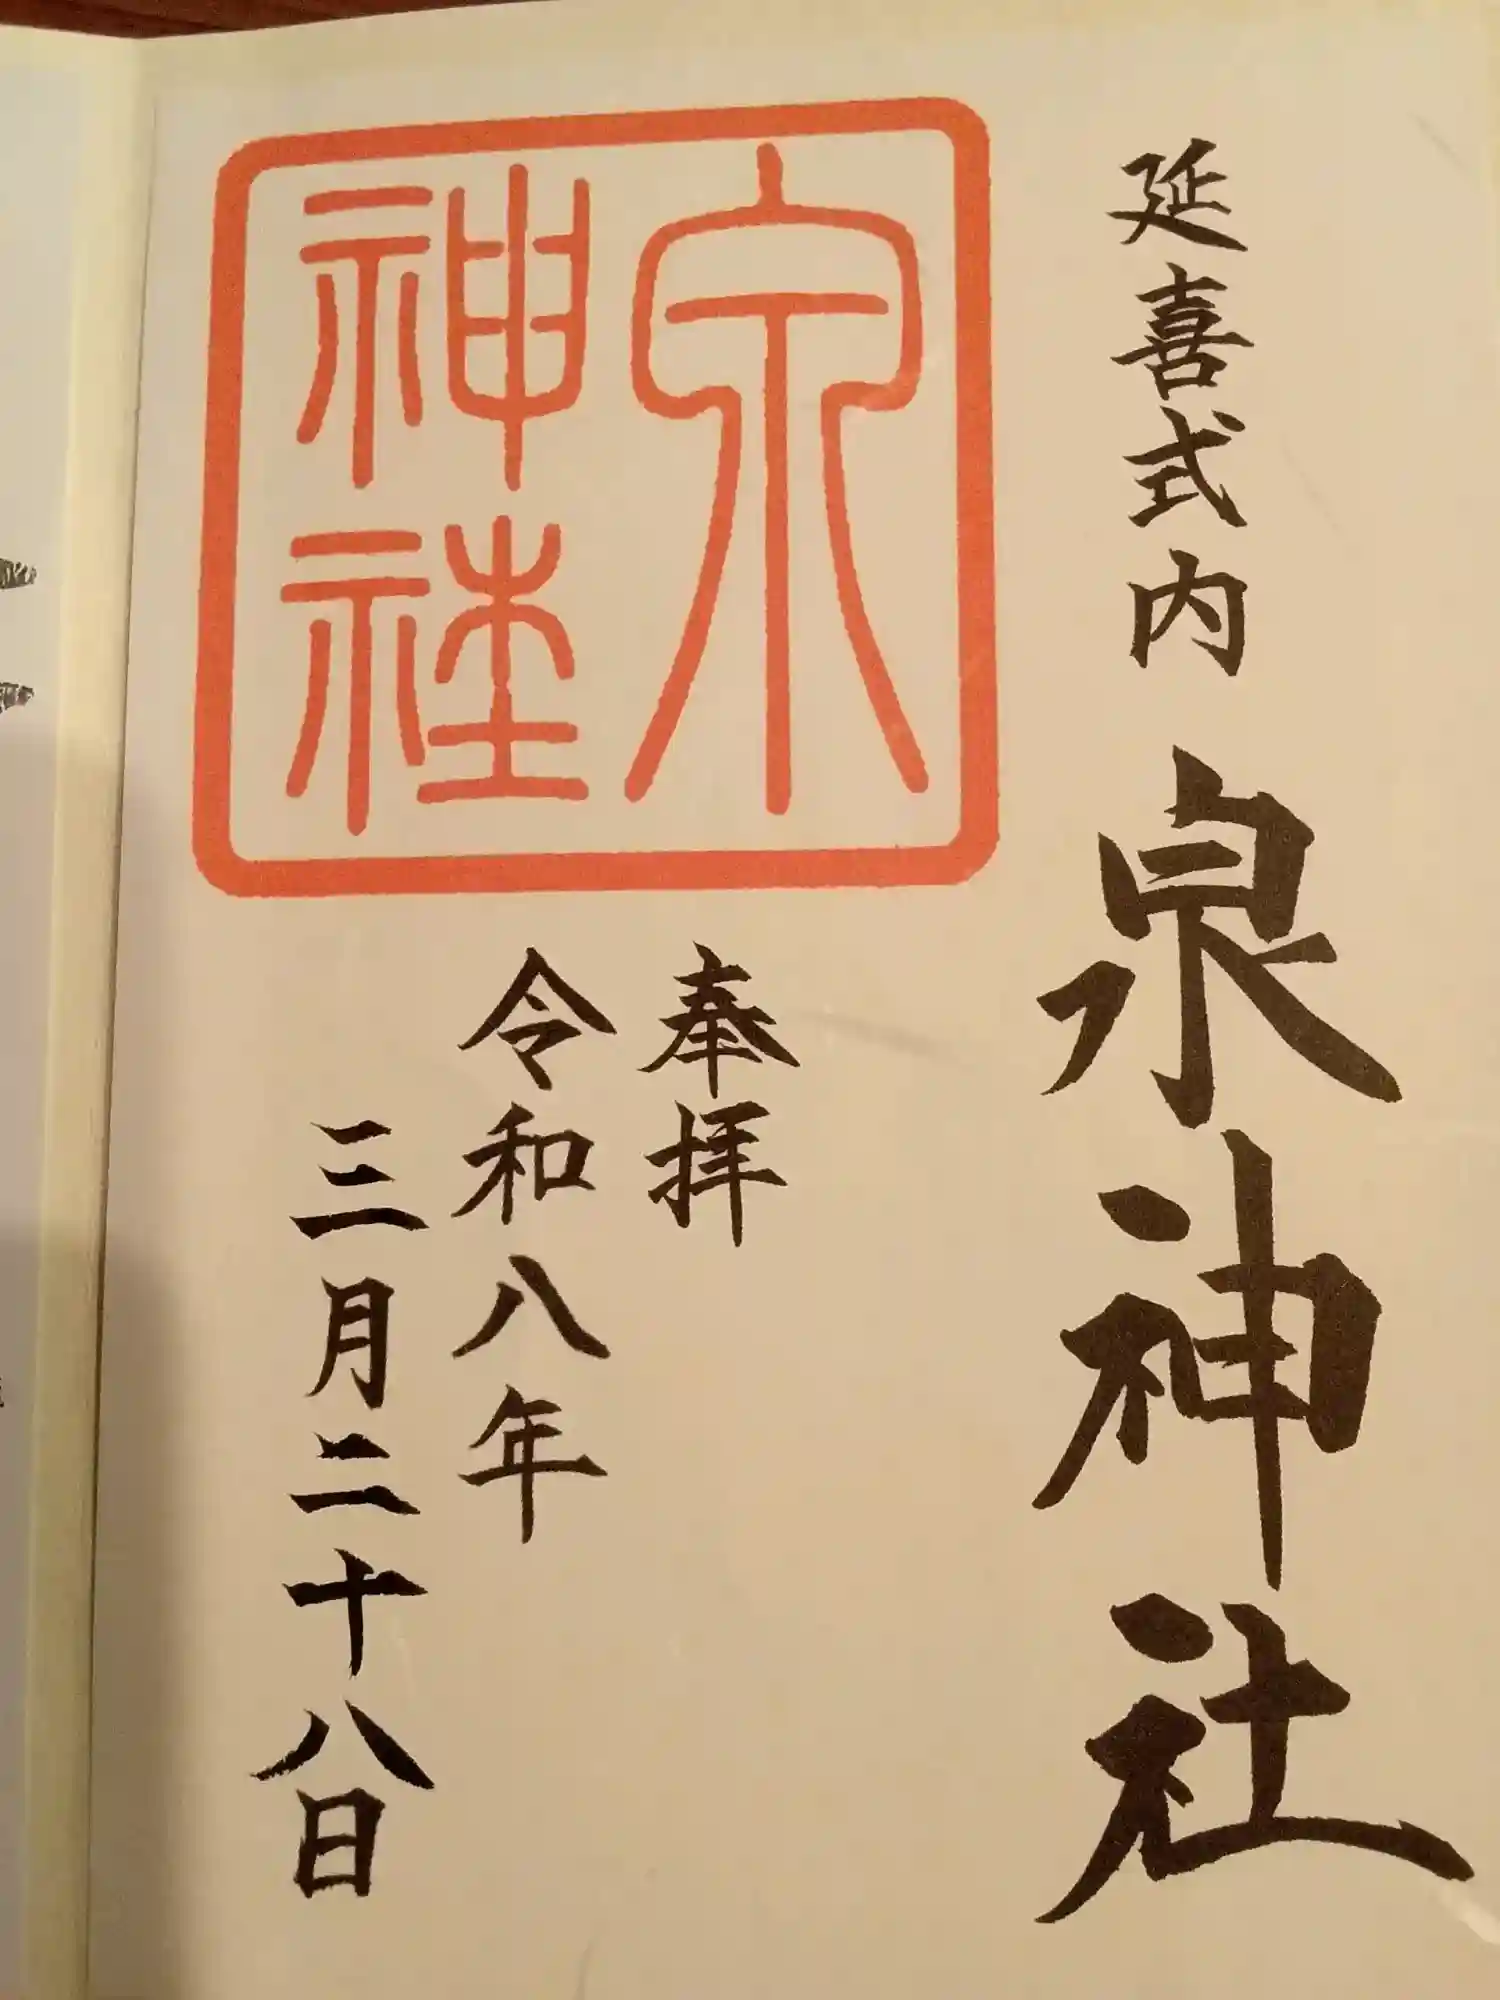 延喜式内 泉神社
泉
神社
奉拝
令和八年
三月二十八日